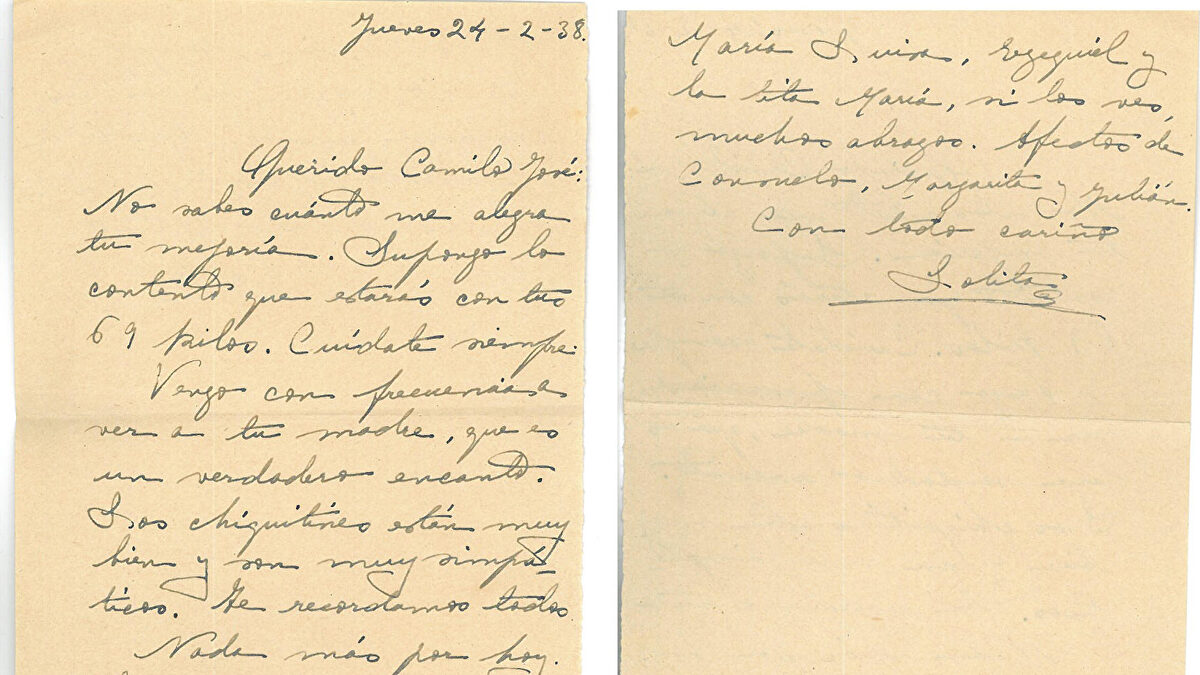 Jueves 24-2-38.
Querido Camilo José:
No sabes cuánto me alegra
tu mejoría. Supongo lo
contento que estarás con tus
69 kilos. Cuídate siempre.
Vengo con frecuencia a
ver a tu madre, que es
un verdadero encanto.
Los chiquitines están muy
bien y son muy simpá-
ticos. Te recordamos todos
Nada más por hoy.
María Luisa, Ezequiel y
la tita María, si los ves,
muchos abrazos. Afectos de
Consuelo, Margarita y Julián.
Con todo cariño
Lolita